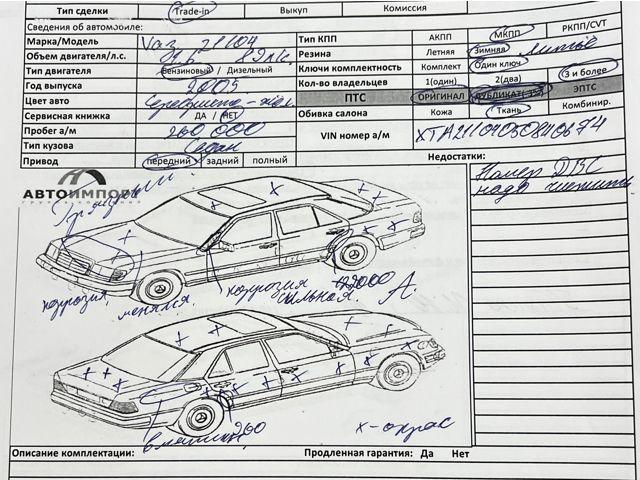 Тип сделки Trade-in Выкуп Комиссия
Сведения об автомобиле:
Марка/Модель Vaz 21104 Тип КПП АКПП МКПП РКПП/CVT
Объем двигателя/л.с. 1,6 89 л.с. Резина Летняя Зимняя литьё
Тип двигателя Бензиновый / Дизельный Ключи комплектность Комплект Один ключ
Год выпуска 2005 Кол-во владельцев 1(один) 2(два) 3 и более
Цвет авто ПТС ОРИГИНАЛ ДУБЛИКАТ ЭПТС
Сервисная книжка ДА / НЕТ Обивка салона Кожа Ткань Комбинир.
Пробег а/м 260 000 VIN номер а/м
Тип кузова Седан
Привод передний задний полный Недостатки:
АВТОИМПОРТ Номер ДВС
Грязный надо чистить
коррозия менялся. коррозия сильная. А.
260 х-окрас
Описание комплектации: Продленная гарантия: Да Нет